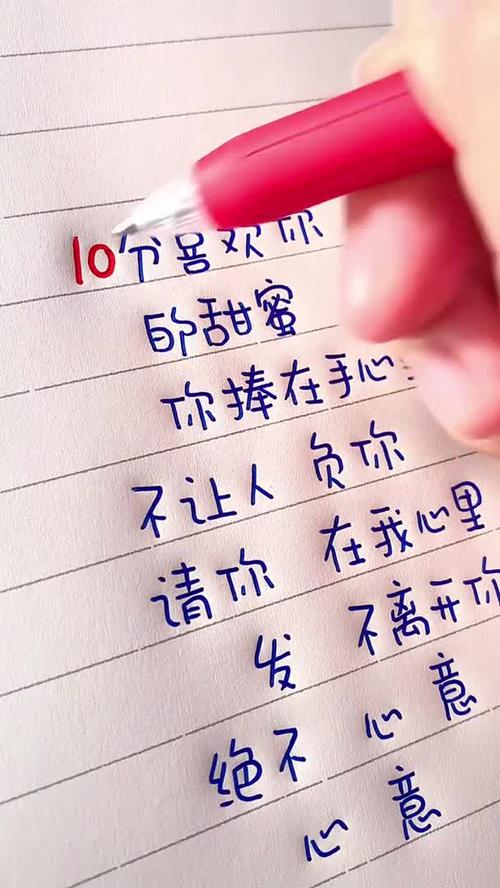 10分喜欢你
的甜蜜
你捧在手心
不让人 负你
请你 在我心里
发 不离开你
绝不 心 意
心 意